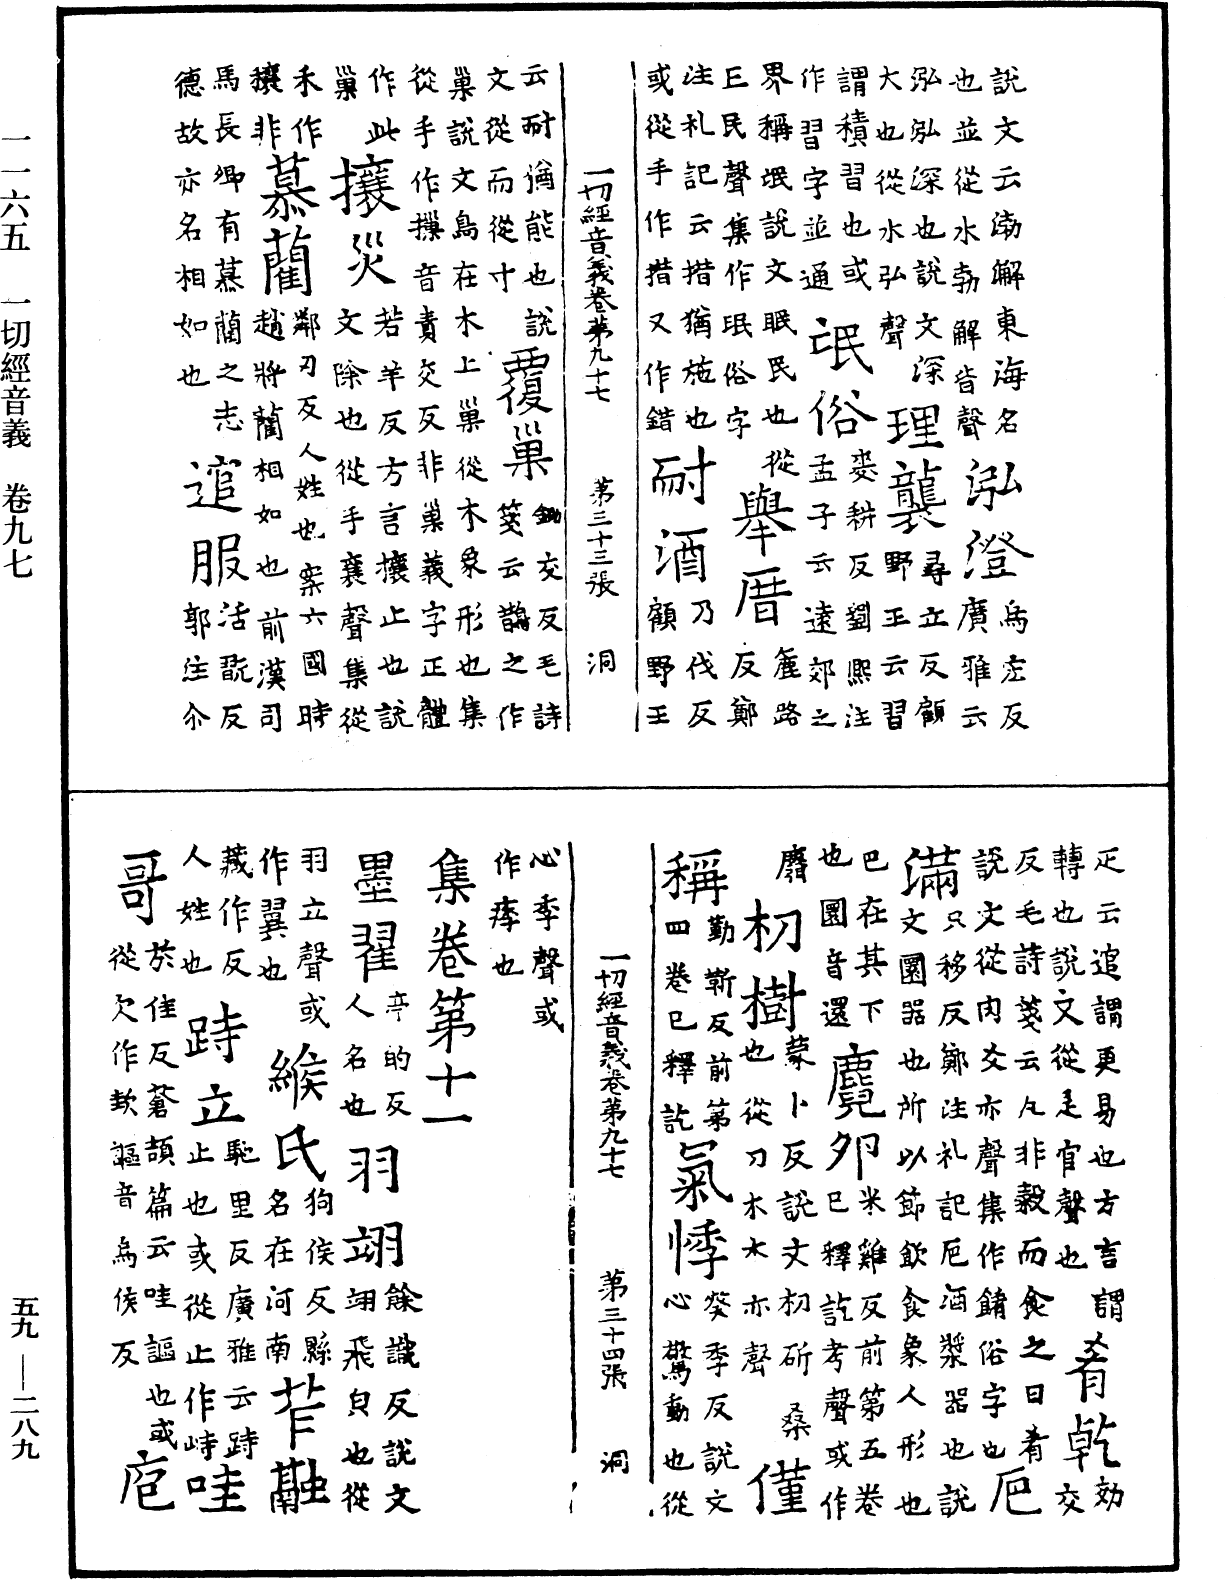 說文云渤澥東海名
也並從水勃解皆聲
泓澄
烏宏反
廣雅云
泓泓深也說文深
大也從水弘聲
理襲
尋立反顧
野王云習
謂積習也或
作習字並通
氓俗
麥耕反劉熙注
孟子云遠郊之
界稱氓說文氓民也從
亡民聲集作珉俗字
舉厝
麁路
反鄭
注礼記云措猶施也
或從手作措又作錯
耐酒
乃伐反
顧野王
一切經音義卷第九十七 第三十三張 洞
云耐猶能也說
文從而從寸
覆巢
鋤交反毛詩
箋云鵲之作
巢說文鳥在木上巢從木象形也集
從手作摷音責交反非巢義字正體
作此
巢
攘災
若羊反方言攘止也說
文除也從手襄聲集從
禾作
穰非
慕藺
鄰刃反人姓也案六國時
趙將藺相如也前漢司
馬長卿有慕藺之志
德故亦名相如也
逭服
活翫反
郭注尒
疋云逭謂更易也方言謂
轉也說文從辵官聲也
肴乾
効
交
反毛詩箋云凡非穀而食之曰肴
說文從肉爻亦聲集作餚俗字也
卮
滿
只移反鄭注礼記卮酒漿器也說
文圜器也所以節飲食象人形也
巴在其下
也圜音還
麑夘
米雞反前第五卷
已釋訖考聲或作
麛
朷樹
蒙卜反說文朷斫桒
也從刀木木亦聲
僅
稱
勤靳反前第
四卷已釋訖
氣悸
葵季反說文
心驚動也從
一切經音義卷第九十七 第三十四張 洞
心季聲或
作痵也
集卷第十一
墨翟
亭的反
人名也
羽翊
餘識反說文
翊飛皃也從
羽立聲或
作翼也
緱氏
狗侯反縣
名在河南
苲融
藏作反
人姓也
跱立
馳里反廣雅云跱
止也或從止作峙
哇
哥
於佳反蒼頡篇云哇謳也或
從欠作欬謳音烏侯反
庖
一一六五 一切經音義 卷九七
五九—二八九